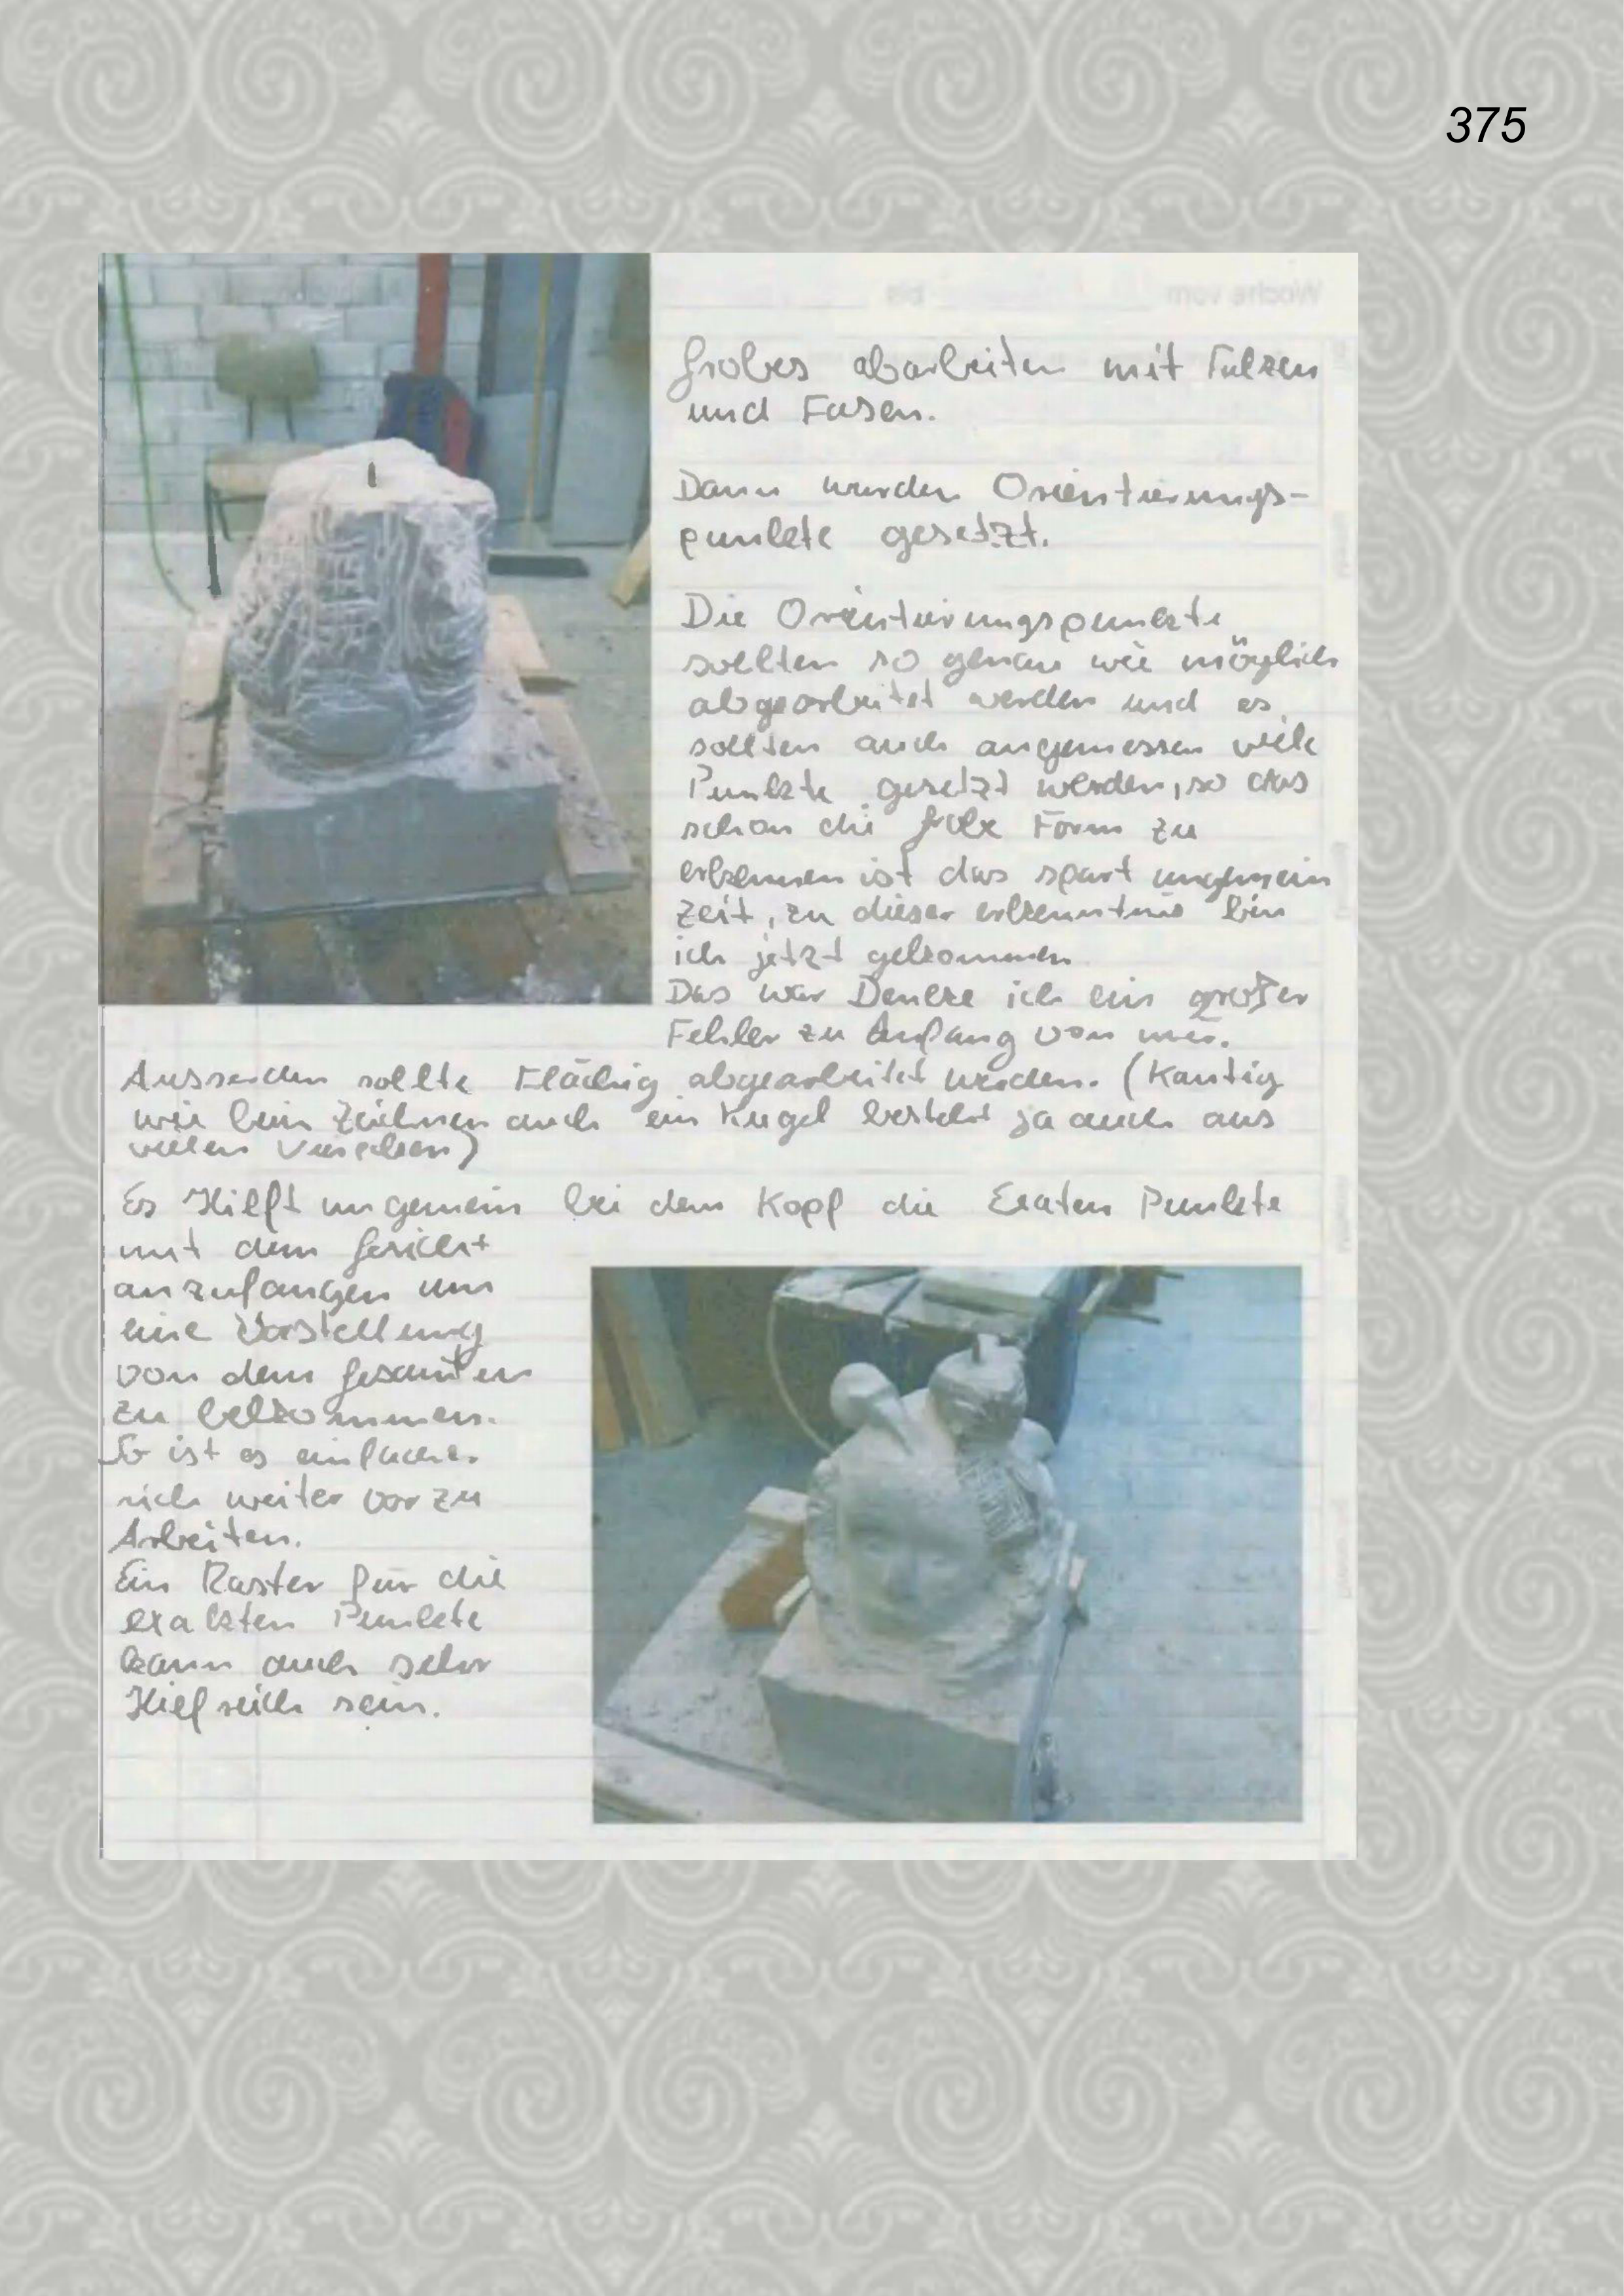 375
Woche vom bis
Grobes abarbeiten mit Falzen
und Fasen.
Dann wurden Orientierungs-
punkte gesetzt.
Die Orientierungspunkte
sollten so genau wie möglich
abgearbeitet werden und es
sollten auch angemessen viele
Punkte gesetzt werden, so das
schon die grobe Form zu
erkennen ist das spart ungemein
Zeit, zu dieser erkenntnis bin
ich jetzt gekommen
Das war Denke ich ein großer
Fehler zu Anfang von mir.
Ausserdem sollte Flächig abgearbeitet werden. (Kantig
wie beim Zeichnen auch ein Kugel besteht ja auch aus
vielen
Es Hilft ungemein bei dem Kopf die Exaten Punkte
mit dem Gesicht
anzufangen um
eine Vorstellung
von dem gesamten
zu bekommen.
So ist es einfacher
sich weiter vor zu
Arbeiten.
Ein Raster für die
exakten Punkte
kann auch sehr
Hilfreich sein.